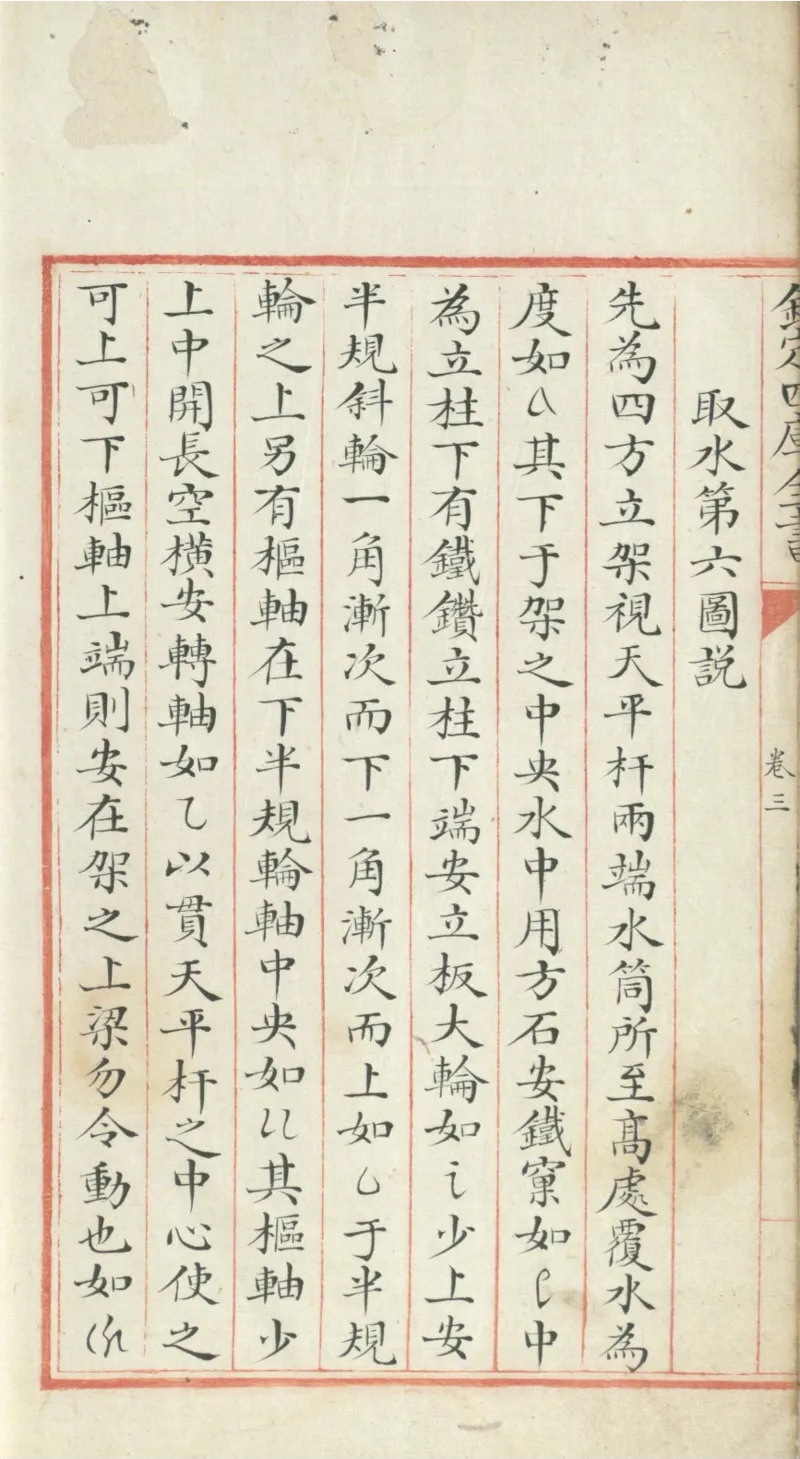 欽定四庫全書
卷三
取水第六圖説
先為四方立架視天平杆兩端水筒所至髙處覆水為
度如其下于架之中央水中用方石安鐵窠如中
為立柱下有鐵鑽立柱下端安立板大輪如少上安
半規斜輪一角漸次而下一角漸次而上如于半規
輪之上另有樞軸在下半規輪軸中央如其樞軸少
上中開長空横安轉軸如乁以貫天平杆之中心使之
可上可下樞軸上端則安在架之上梁勿令動也如